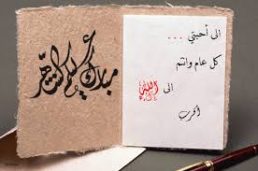 الى أحبتي ...
كل عام وانتم
الى الله
أقرب
مبارك عليكم الشهر